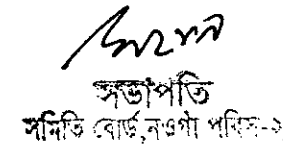 সভাপতি
সমিতি বোর্ড, নওগাঁ পবিস-২